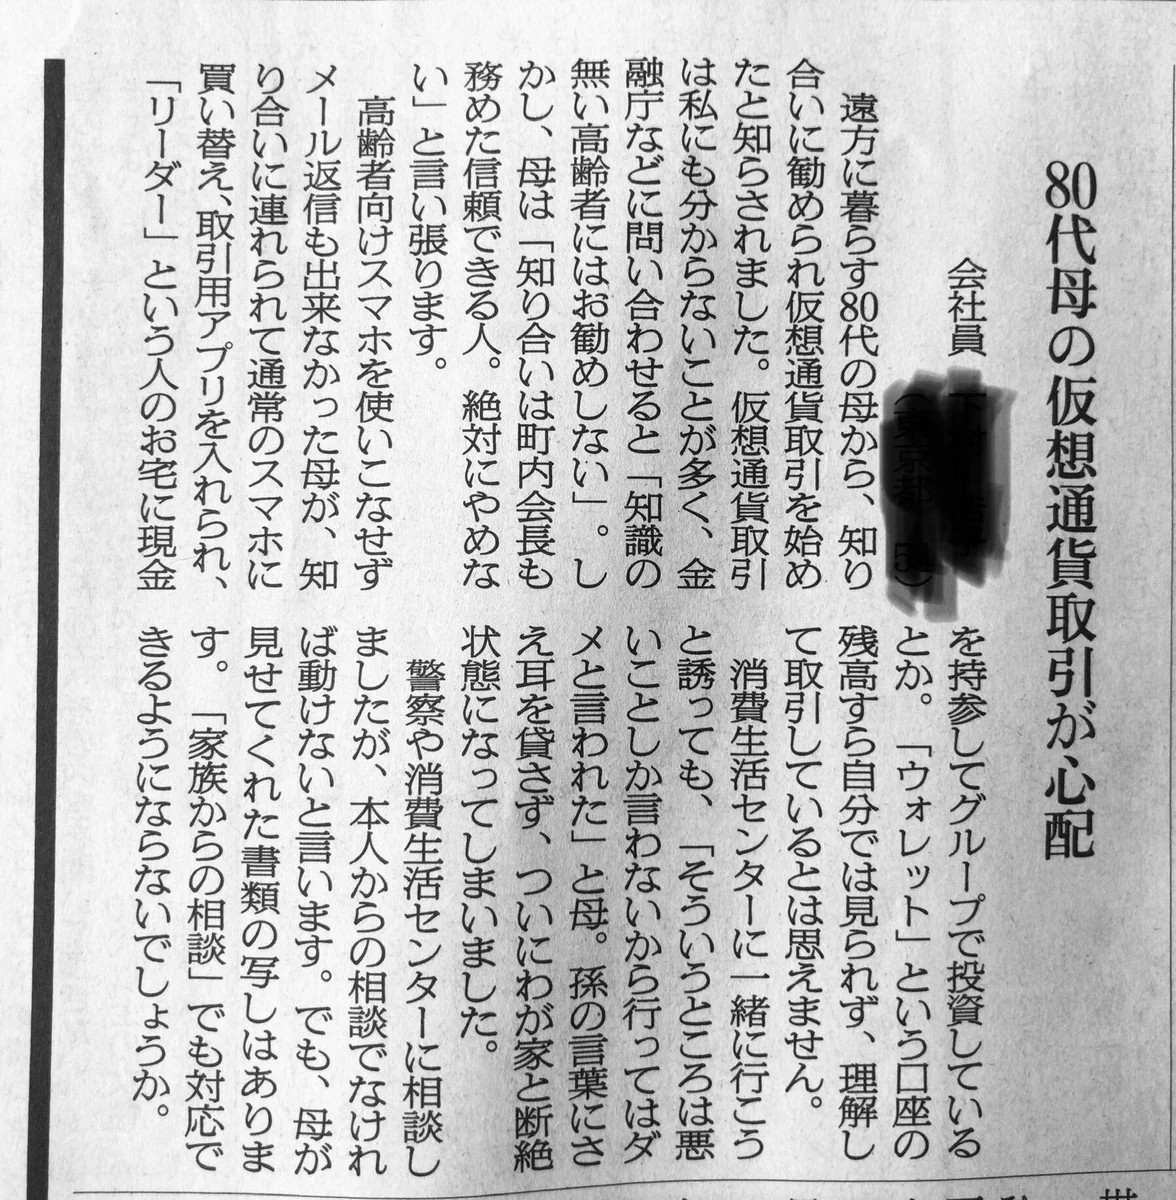 80代母の仮想通貨取引が心配
会社員
遠方に暮らす80代の母から、知り
合いに勧められ仮想通貨取引を始め
たと知らされました。仮想通貨取引
は私にも分からないことが多く、金
融庁などに問い合わせると「知識の
無い高齢者にはお勧めしない」。し
かし、母は「知り合いは町内会長も
務めた信頼できる人。絶対にやめな
い」と言い張ります。
高齢者向けスマホを使いこなせず
メール返信も出来なかった母が、知
り合いに連れられて通常のスマホに
買い替え、取引用アプリを入れられ、
「リーダー」という人のお宅に現金
を持参してグループで投資している
とか。「ウォレット」という口座の
残高すら自分では見られず、理解し
て取引しているとは思えません。
消費生活センターに一緒に行こう
と誘っても、「そういうところは悪
いことしか言わないから行ってはダ
メと言われた」と母。孫の言葉にさ
え耳を貸さず、ついにわが家と断絶
状態になってしまいました。
警察や消費生活センターに相談し
ましたが、本人からの相談でなけれ
ば動けないと言います。でも、母が
見せてくれた書類の写しはありま
す。「家族からの相談」でも対応で
きるようにならないでしょうか。